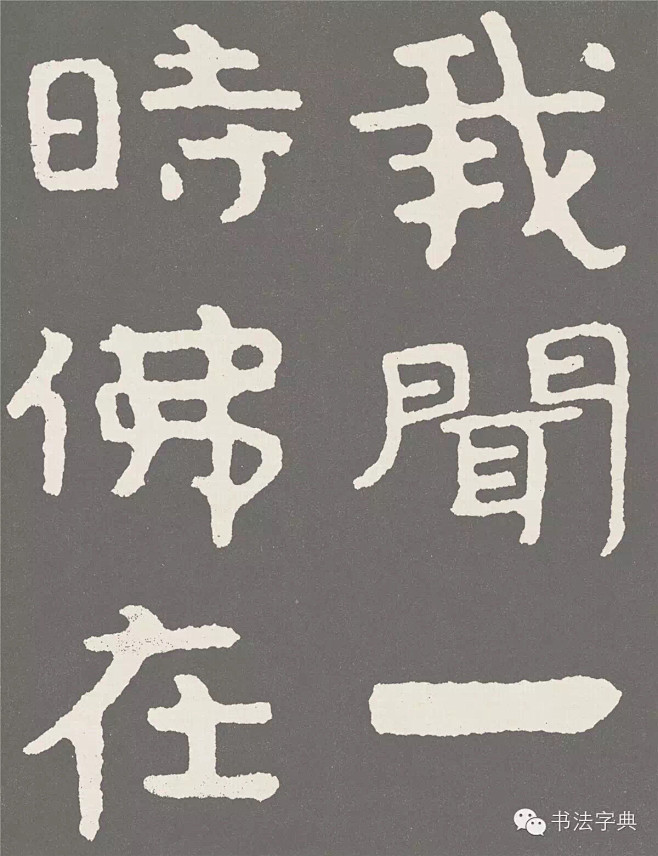 我聞一
時佛在
书法字典